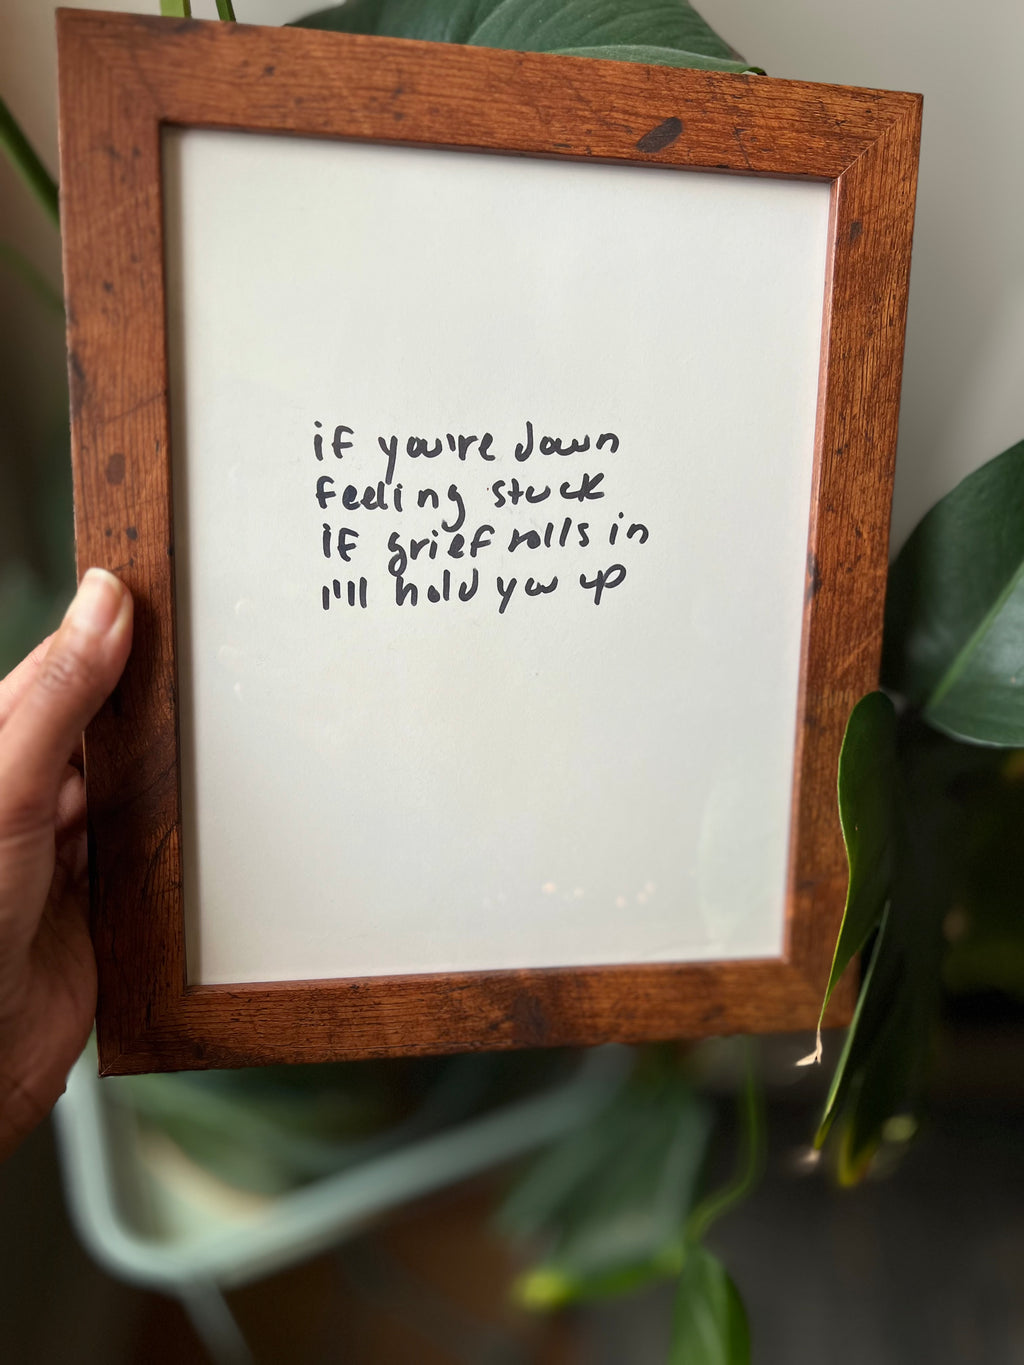 if you're down
feeling stuck
if grief rolls in
I'll hold you up